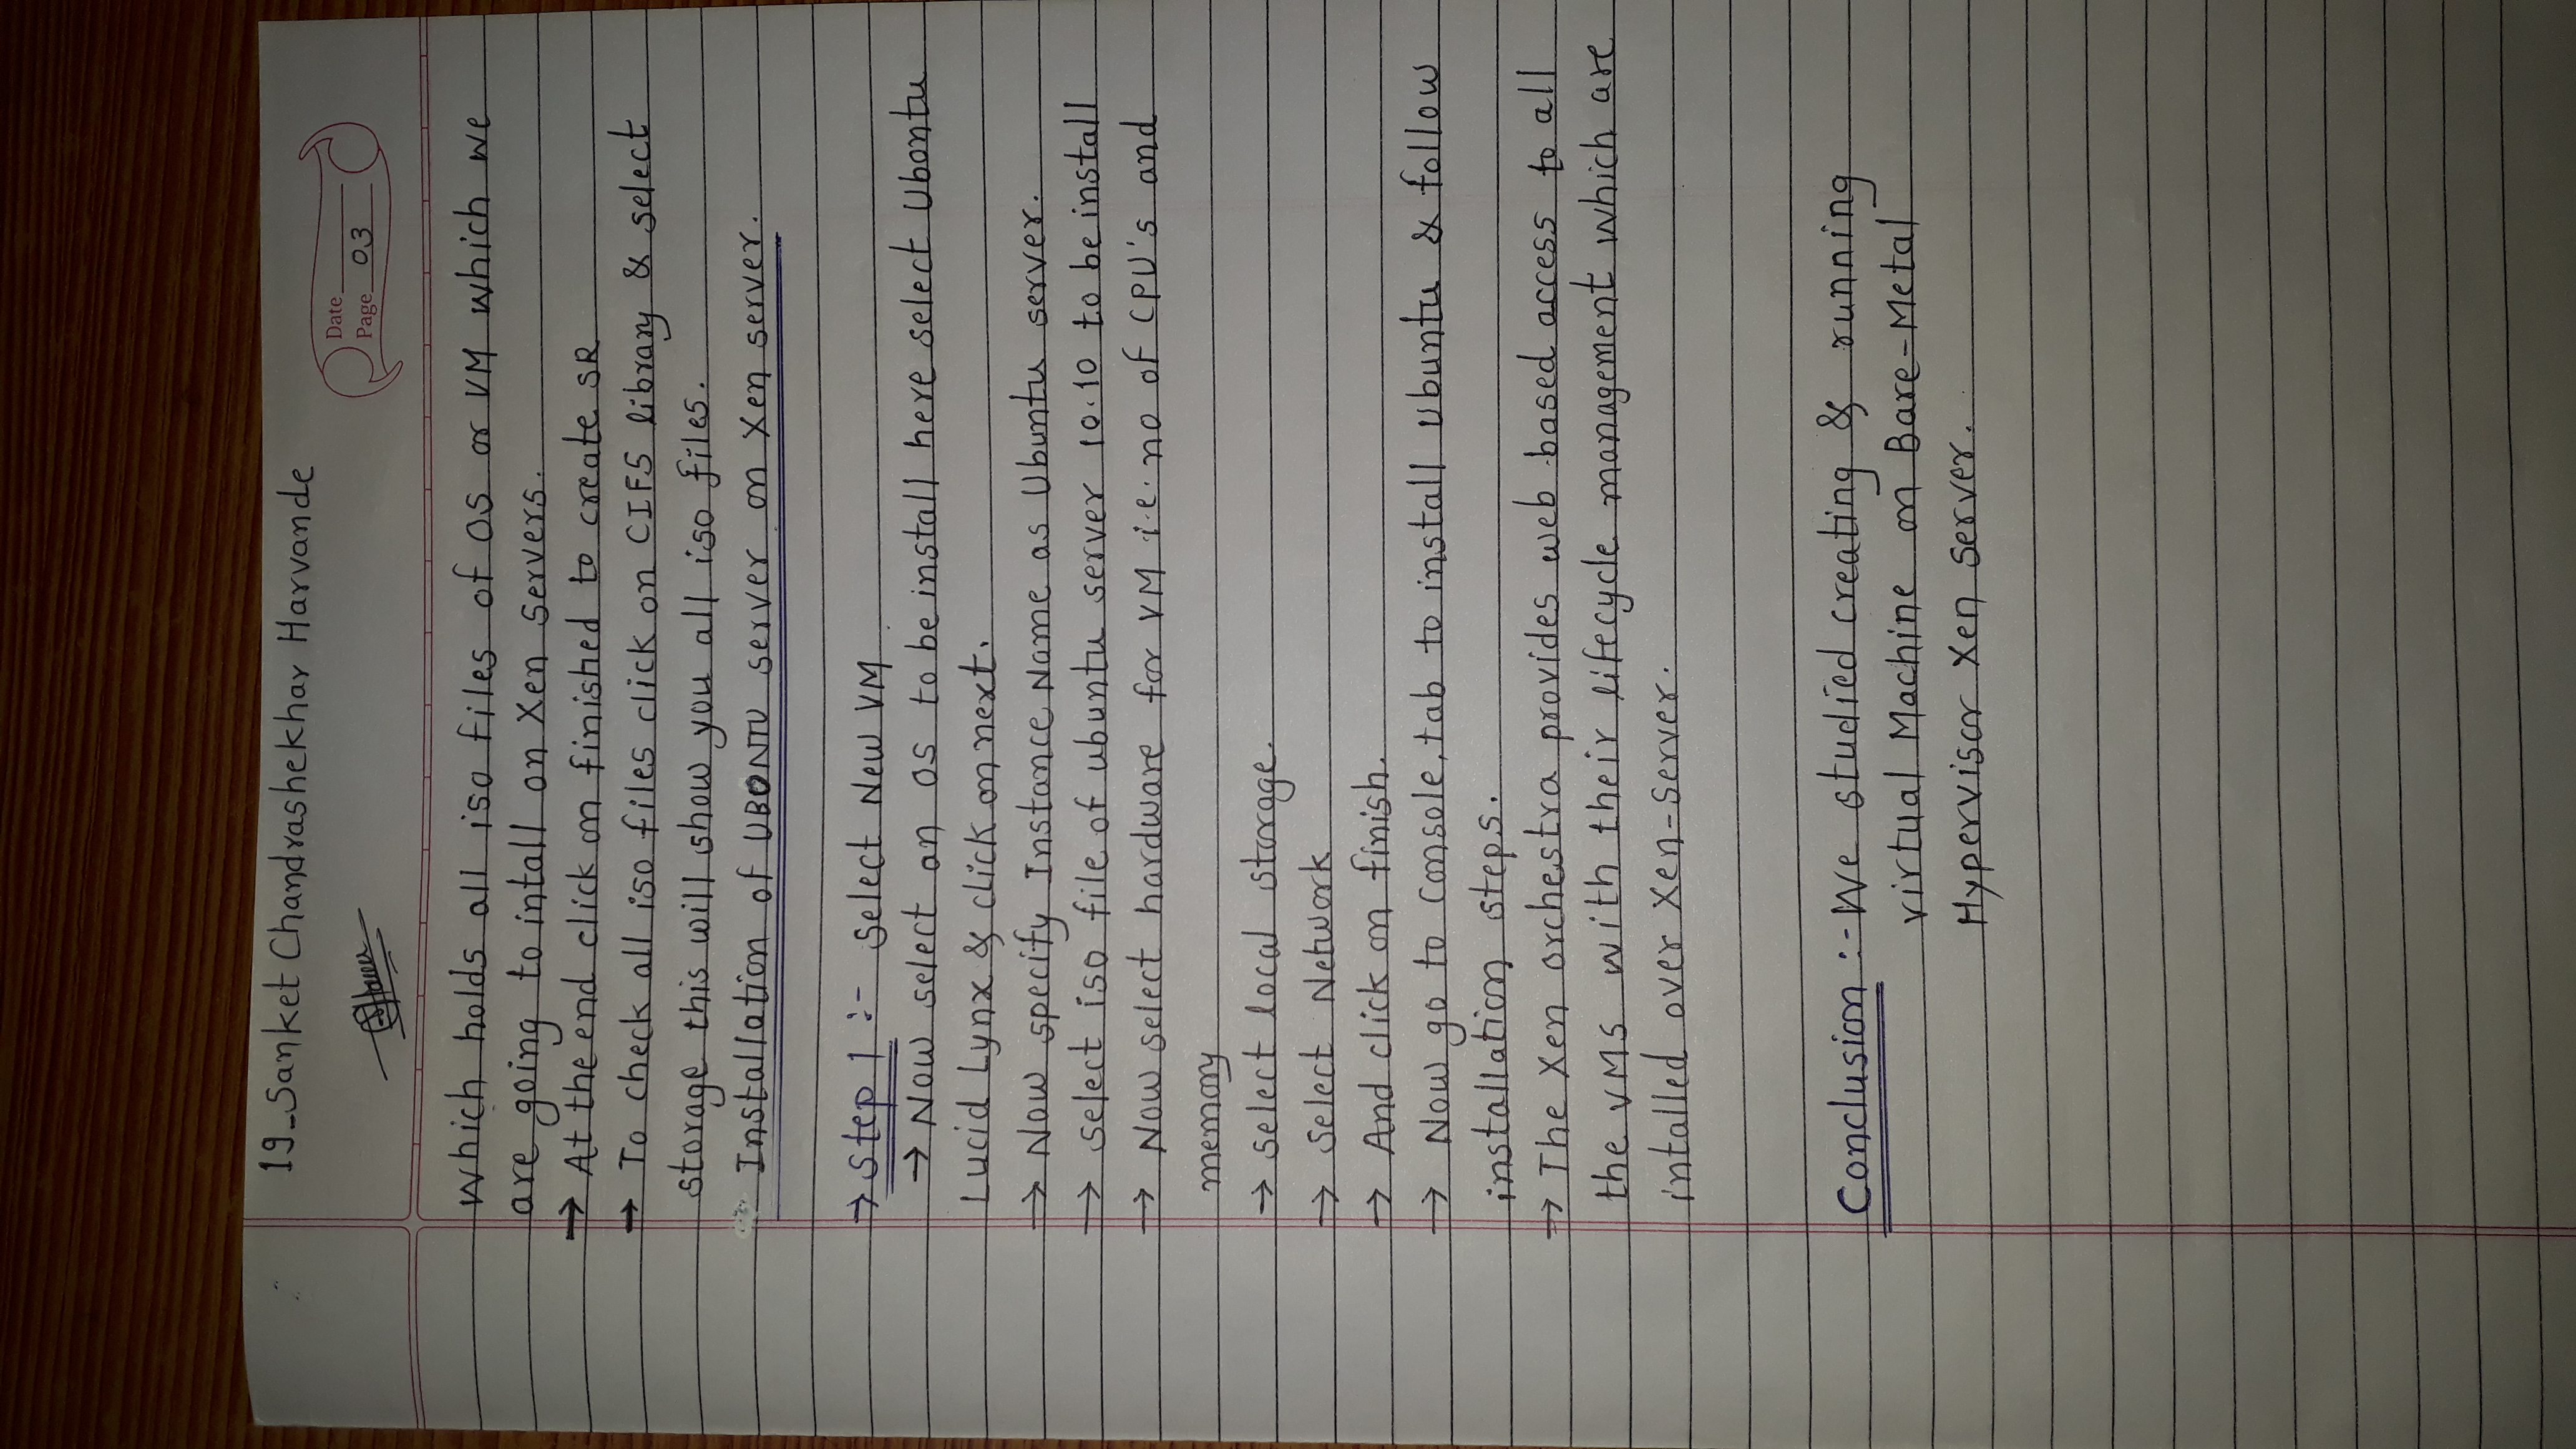 19_Sanket Chandrashekhar Harvande
Date
Page 03
which holds all iso files of OS or VM which we
are going to intall on Xen servers.
→ At the end click on finished to create SR
→ To check all iso files click on CIFS library & select
storage this will show you all iso files.
Installation of UBONTU server on Xen server.
→ Step 1 :- Select New VM
→ Now select an OS to be install here select Ubontu
Lucid Lynx & click on next.
→ Now specify Instance Name as Ubuntu server.
→ select iso file of ubuntu server 10.10 to be install
→ Now select hardware for VM i.e. no of CPU's and
memory
→ select local storage.
→ Select Network
→ And click on finish.
→ Now go to console, tab to install ubuntu & follow
installation steps.
→ The Xen orchestra provides web based access to all
the VMS with their lifecycle management which are
intalled over Xen-Server.
Conclusion :- We studied creating & running
virtual Machine on Bare-Metal
Hypervisor Xen Server.